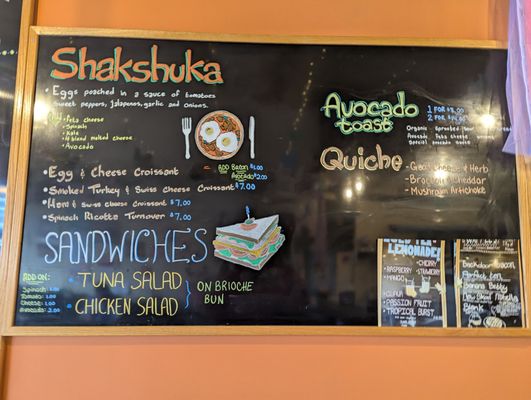 Shakshuka
• Eggs poached in a sauce of tomatoes
Sweet peppers, Jalapenos, garlic and onions.
Feta cheese
• Spinach
• Kale
melted cheese
• Avocado
ADD Bacon
Avocado
• Egg & Cheese Croissant
• Smoked Turkey & Swiss Cheese Croissant $7.00
• Ham & Swiss cheese Croissant $7.00
• Spinach Ricotta Turnover $7.00
SANDWICHES
ADD ON:
Spinach 1.00
Tomato: 1.00
Cheese: 1.00
Avocado: 2.00
• TUNA SALAD
• CHICKEN SALAD
ON BRIOCHE
BUN
Avocado
toast
1 FOR
2 FOR
Organic
Avocado, Feta cheese
Special avocado sauce
Quiche
- Goat & Herb
- Cheddar
- Mushroom Artichoke
LEMONADE
• CHERRY
• RASPBERRY
• STRAWBERRY
• MANGO
• GUAVA
• PASSION FRUIT
• TROPICAL BURST